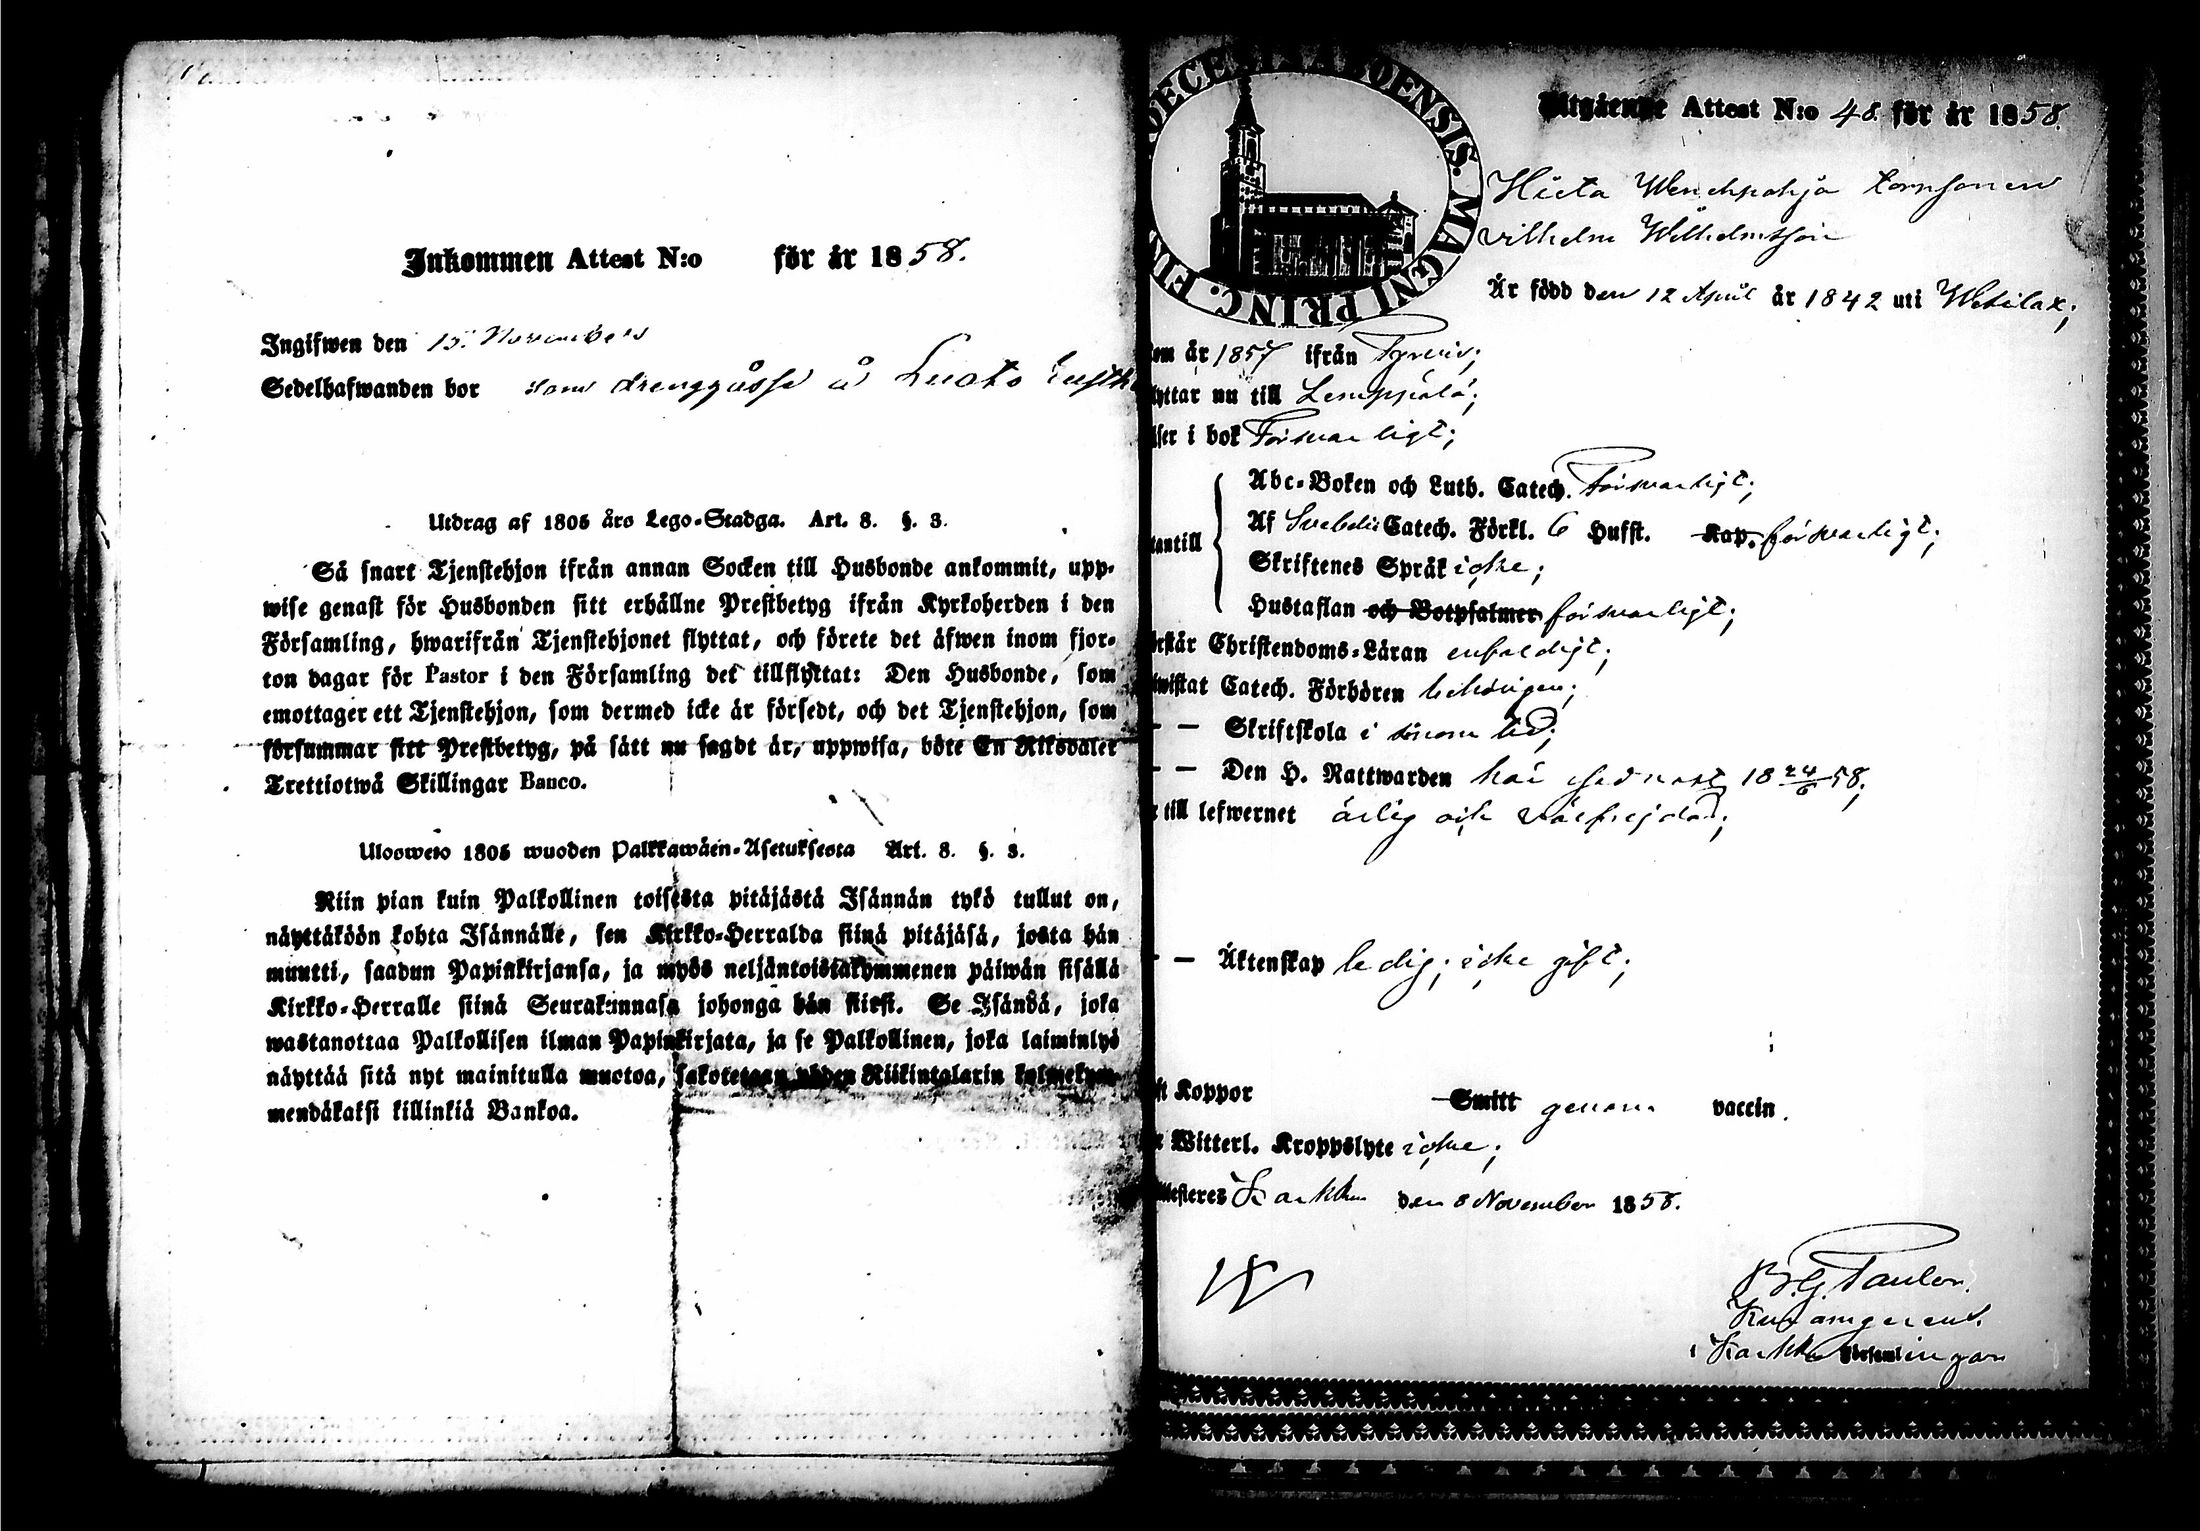 Inkommen Attest N:o för år 1858.
Ingifwen den 15 Novembers
Sedelhafwanden bor som drenggåsse å
Utdrag af 1805 års Lego-Stadga. Art. 8. §. 3.
Så snart Tjenstehjon ifrån annan Socken till Husbonde ankommit, upp-
wise genast för Husbonden sitt erhållne Prestbetyg ifrån Kyrkoherden i den
Församling, hwarifrån Tjenstehjonet flyttat, och förete det äfwen inom fjor-
ton dagar för Pastor i den Församling det tillflyttat: Den Husbonde, som
emottager ett Tjenstehjon, som dermed icke är försedt, och det Tjenstehjon, som
försummar sitt Prestbetyg, på sätt nu sagdt är, uppwisa, böte En Riksdaler
Trettiotwå Skillingar Banco.
Ulosweto 1805 wuoden Palkkawäen-Asetuksesta Art. 8. §. 3.
Niin pian kuin Palkollinen toisesta pitäjästä Isännän tykö tullut on,
näyttäköön kohta Isännälle, sen Kirkko-Herralda siinä pitäjäsä, josta hän
muutti, saadun Papinkirjansa, ja myös neljäntoistakymmenen päiwän sisällä
Kirkko-Herralle siinä Seurakunnasa johonga hän siirsi. Se Isändä, joka
wastanottaa Palkollisen ilman Papinkirjata, ja se Palkollinen, joka laiminlyö
näyttää sitä nyt mainitulla muotoa, sakotetaan yhden Riikintalarin kolmekym-
mendäkaksi killinkiä Bankoa.
DECESIS ABOENSIS. MAGNI PRINC. FIN
Utgående Attest N:o 48. för år 1858.
Hieta
Vilhelm Wilhelmsson
Är född den 12 April år 1842 uti Wesilax;
om år 1857 ifrån Tyrvis;
yttar nu till Lemppälä;
ser i bok Försvarligt;
Abc-Boken och Luth. Catech. Försvarligt;
antill Af Svebelii Catech. Förkl. 6 Hufst. Kap. försvarligt;
Skriftenes Språk icke;
Hustaflan och Botpsalmer försvarligt;
rstår Christendoms-Läran enfaldigt;
wistat Catech. Förhören behörigen;
— — Skriftskola i sinom tid;
— — Den H. Nattwarden har sednast 18 24/6 58;
till lefwernet ärlig och välfrejdad;
— — Äktenskap ledig; icke gift;
ft Koppor Smitt genom vaccin.
Witterl. Kroppslyte icke;
ttesteres Karkku den 8 November 1858.
B. G. Paulon.
i Karkku Församlingar